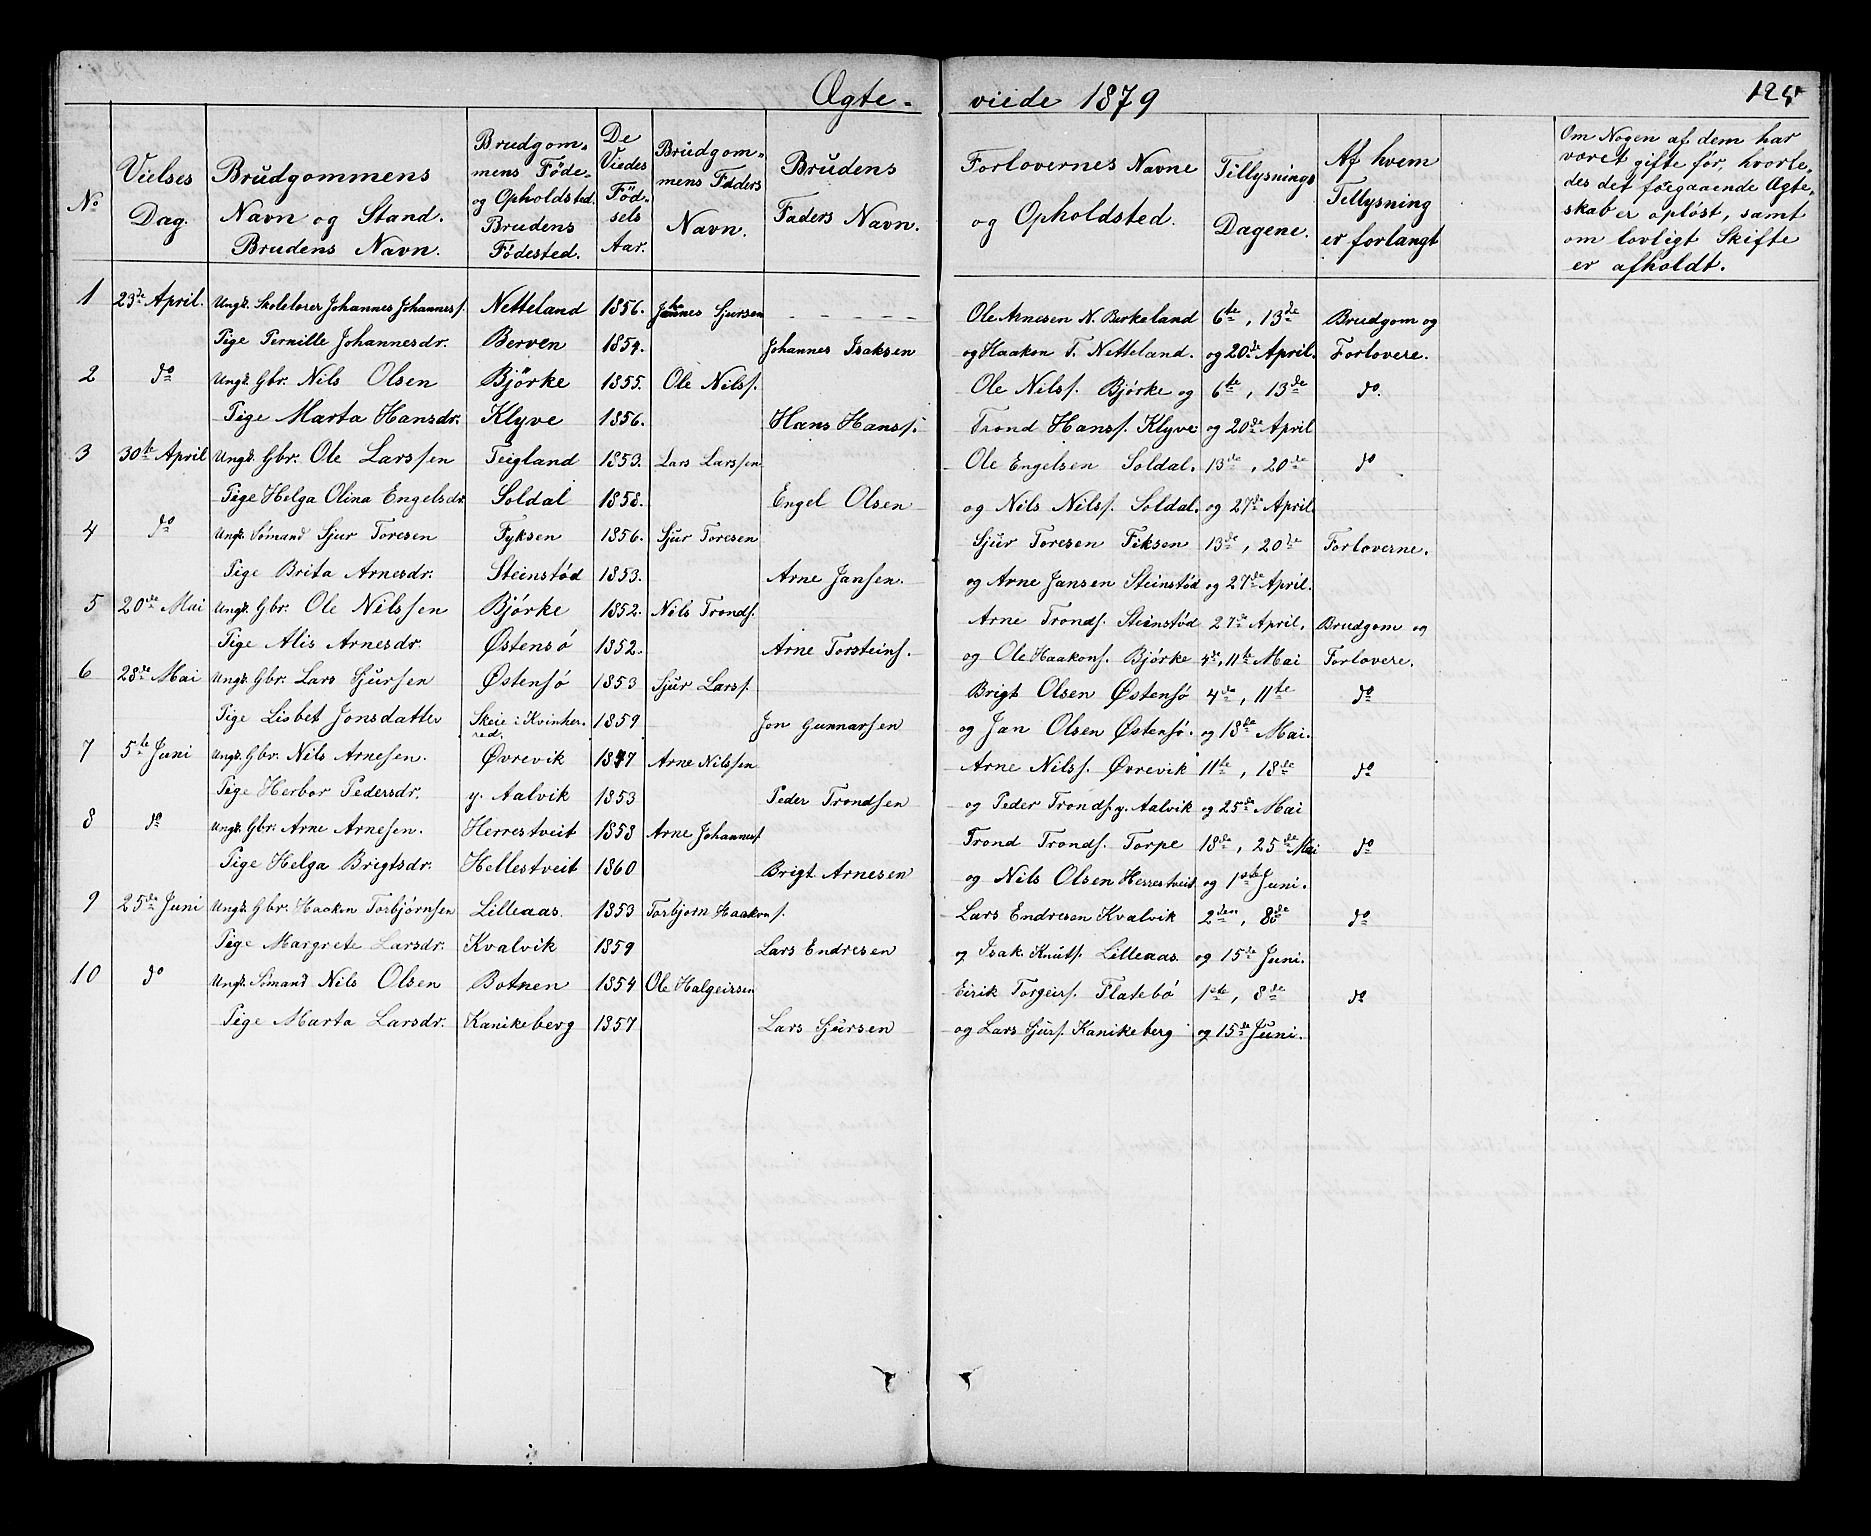 Ægte-viede 1879
125
No
Vielses Dag.
Brudgommens Navn og Stand. Brudens Navn.
Brudgommens Föde- og Opholdsted. Brudens Födested.
De Viedes Födsels Aar.
Brudgommens Faders Navn.
Brudens Faders Navn.
Forlovernes Navne og Opholdsted.
Tillysnings Dagene.
Af hvem Tillysning er forlangt
Om Nogen af dem har
været gifte før, hvorle-
des det foregaaende Ægte-
skab er opløst, samt
om lovligt Skifte
er afholdt.
1 23de April. Ungk. Skolelærer Johannes Johanness. Netteland 1856. Johannes Sjursen - - - - - Ole Arnesen N. Birkeland 6te, 13de Brudgom og
Pige Pernille Johannesdr. Berven 1854. Johannes Isaksen og Haakon T. Netteland. og 20de April. Forlovere.
2 do Ungk. Gbr. Nils Olsen Björke 1855. Ole Nilss. Ole Nilss. Björke og 6te, 13de do.
Pige Marta Hansdr. Klyve 1856. Hans Hanss. Trond Hanss. Klyve og 20de April
3 30te April Ungk. Gbr. Ole Larssen Teigland 1853. Lars Larssen Ole Engelsen Soldal. 13de, 20de do
Pige Helga Olina Engelsdr. Soldal 1858. Engel Olsen og Nils Nilss. Soldal. og 27de April
4 do Ungk. Sømand Sjur Toresen Fyksen 1856. Sjur Toresen Sjur Toresen Fiksen 13de, 20de Forloverne.
Pige Brita Arnesdr. Steinstød 1853. Arne Jansen. og Arne Jansen Steinstød og 27de April.
5 20de Mai Ungk. Gbr. Ole Nilssen Björke 1852. Nils Tronds. Arne Tronds. Steinstød 27de April, Brudgom og
Pige Alis Arnesdr. Østensø 1852. Arne Torsteins. og Ole Haakons. Björke 4de, 11te Mai Forlovere.
6 28de Mai Ungk. Gbr. Lars Sjursen Østensø 1853 Sjur Larss. Brigt Olsen Østensø 4de, 11te do
Pige Lisbet Jonsdatter Skeie i Kvinherred. 1859. Jon Gunnarsen og Jan Olsen Østensø. og 18de Mai.
7 5te Juni Ungk. Gbr. Nils Arnesen. Øvrevik 1847 Arne Nilssen Arne Nilss. Øvrevik 11te, 18de do
Pige Herbor Pedersdr. y. Aalvik 1853 Peder Trondsen og Peder Tronds. y. Aalvik og 25de Mai
8 do Ungk. Gbr. Arne Arnesen. Herrestveit 1858 Arne Johanness. Trond Tronds. Torpe 18de, 25de Mai do
Pige Helga Brigtsdr. Hellestveit 1860 Brigt Arnesen og Nils Olsen Herrestveit og 1ste Juni.
9 25de Juni Ungk. Gbr. Haakon Torbjörnsen Lilleaas. 1853 Torbjorn Haakons. Lars Endresen Kvalvik 2den, 8de do
Pige Margrete Larsdr. Kvalvik 1859 Lars Endresen og Isak Knuts. Lilleaas. og 15de Juni.
10 do Ungk. Sømand Nils Olsen Botnen 1854 Ole Halgeirsen Eirik Torgeirs. Flatebø 1ste, 8de do
Pige Marta Larsdr. Kanikeberg 1857 Lars Sjursen og Lars Sjurs. Kanikeberg og 15de Juni.